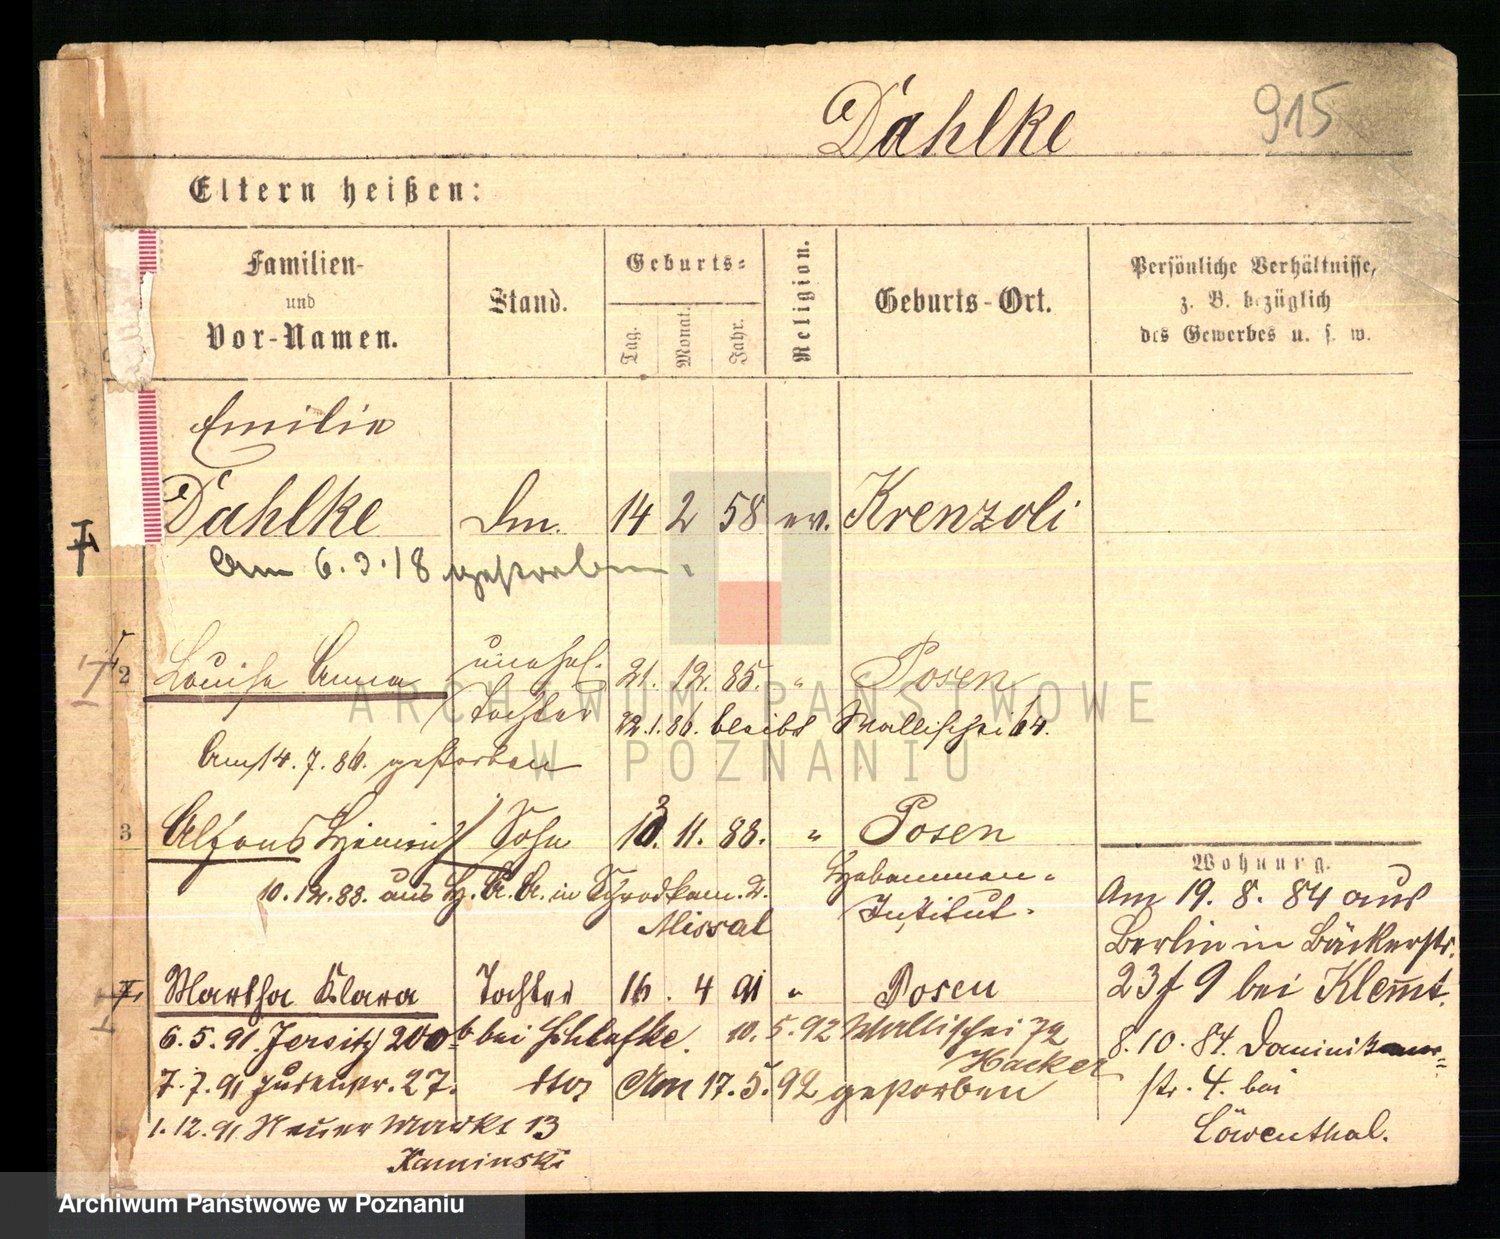 Dahlke 915
Eltern heißen:
Familien-
und
Vor-Namen.
Stand.
Geburts-
Tag.
Monat.
Jahr.
Religion.
Geburts-Ort.
Persönliche Verhältnisse,
z. B. bezüglich
des Gewerbes u. s. w.
Emilie
Dahlke 14 2 58 ev.
Am 6.3.18 gestorben.
2 Louise Anna unehel. 21. 12. 85. " Posen
Tochter 22.1.86. bleibt Wallischei 64.
Am 14.7.86. gestorben
3 Alfons Heinrich Sohn 11. 88. " Posen
10.12.88. aus in Schrodkam. 2. Hebammen-
Missal Institut.
Martha Klara Tochter 16. 4 91 " Posen
6.5.91 Jersitz 200b bei 10.5.92 Wallischei 72
Hacker
7.7.91 Judenstr. 27. Am 17.5.92 gestorben
1.12.91 Neuer Markt 13
Kaminski
Wohnung.
Am 19. 8. 84 aus
Berlin in Bäckerstr.
bei
8.10.84. Dominikaner-
str. 4. bei
Löwenthal.
ARCHIWUM PAŃSTWOWE
W POZNANIU
Archiwum Państwowe w Poznaniu